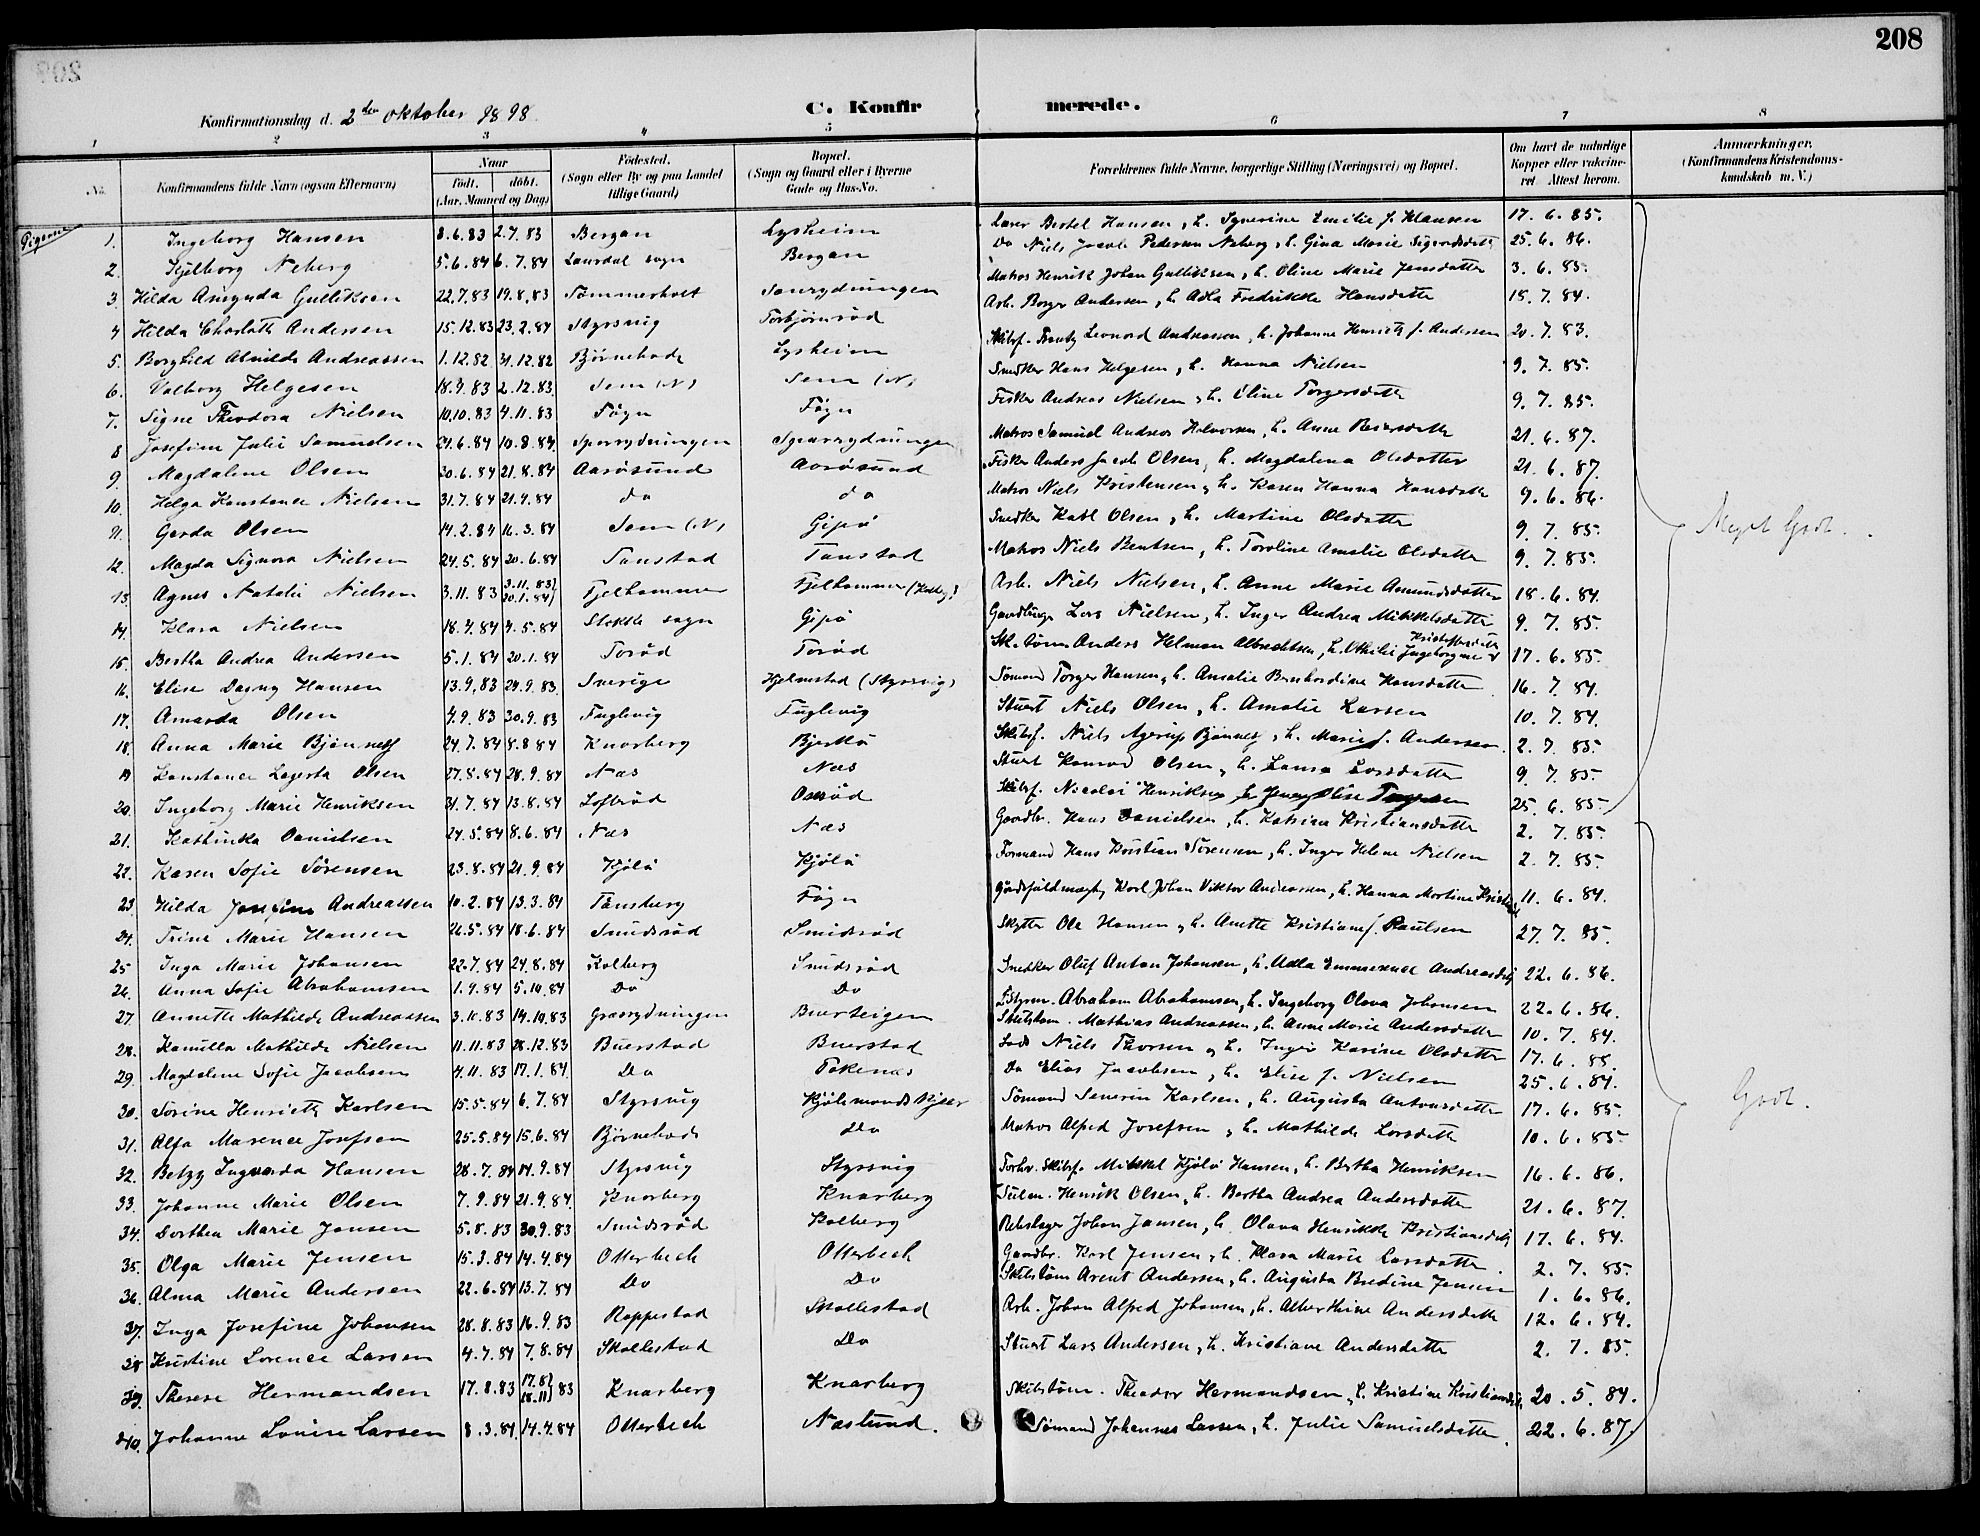 208
Konfirmationsdag d. 2den oktober 1898. C. Konfirmerede.
1 2 3 4 5 6 7 8
No. Konfirmandens fulde Navn (ogsaa Efternavn) Naar født. døbt. (Aar, Maaned og Dag) Fødested. (Sogn eller By og paa Landet tillige Gaard) Bopæl. (Sogn og Gaard eller i Byerne Gade og Hus-No. Forældrenes fulde Navne, borgerlige Stilling (Næringsvei) og Bopæl. Om havt de naturlige Kopper eller vakcineret. Attest herom. Anmærkninger. (Konfirmandens Kristendomskundskab m. V.)
Pigerne
1. Ingeborg Hansen 8.6.83 2.7.83 Bergan Lysheim Bertel Hansen, h. Emilie f. Klausen 17.6.85.
2. Neberg 5.6.84 6.7.84 Laurdal sogn Bergan Do Niels Jacob Pedersen Neberg, h. Gina Marie 25.6.86.
3. Hilda Gulliksen 22.7.83 19.8.83 Sømmerholt Matros Henrik Johan Gulliksen, h. Oline Marie Jensdatter 3.6.85.
4. Hilda Charlotte Andersen 15.12.83 23.2.84 Styrsvig Torbjørnrød Arb. Borger Andersen, h. Adla Fredrikke Hansdatter 15.7.84.
5. Borghild Alvilde Andreassen 1.12.82 31.12.82 Bjørnebode Lysheim Skibsf. Frantz Leonard Andreassen, h. Johanne Henriette f. Andersen 20.7.83.
6. Valborg Helgesen 18.9.83 2.12.83 Sem (N) Sem (N) Snedker Hans Helgesen, h. Hanna Nielsen 9.7.85.
7. Signe Theodora Nielsen 10.10.83 4.11.83 Føgn Føgn Fisker Andreas Nielsen, h. Oline Torgersdatter 9.7.85.
8. Josefine Julie Samuelsen 24.6.84 10.8.84 Sparrydningen Sparrydningen Matros Samuel Andreas Halvorsen, h. Anne 21.6.87.
9. Magdaline Olsen 30.6.84 21.8.84 Aarøsund Aarøsund Fisker Anders Jacob Olsen, h. Magdalena Olsdatter 21.6.87.
10. Helga Konstance Nielsen 31.7.84 21.9.84 do do Matros Niels Kristensen, h. Karen Hanna Hansdatter 9.6.86.
11. Gerda Olsen 14.2.84 16.3.84 Sem (N) Gipø Snedker Karl Olsen, h. Martine Olsdatter 9.7.85.
12. Magda Signora Nielsen 24.5.84 20.6.84 Tanstad Tanstad Matros Niels Bentsen, h. Toroline Amalie Olsdatter 9.7.85.
13. Agnes Natalie Nielsen 3.11.83 3.11.83) 20.1.84) Fjelhammer Fjelhammer Arb. Niels Nielsen, h. Anne Marie Amundsdatter 18.6.84.
14. Klara Nielsen 18.4.84 4.5.84 Stokke sogn Gipø Lars Nielsen, h. Inger Andrea Mikkelsdatter 9.7.85.
15. Bertha Andrea Andersen 5.1.84 20.1.84 Torød Torød Sk.tøm. Anders Helman Albrechtsen, h. Othilie Ingeborg Kristoffersdatter 17.6.85.
16. Elise Dagny Hansen 13.9.83 29.9.83. Sverige Hjelmstad (Styrsvig) Sømand Torger Hansen, h. Amalie Bernhardine Hansdatter 16.7.84.
17. Amanda Olsen 4.9.83 30.9.83 Fuglevig Fuglevig Stuert Niels Olsen, h. Amalie Larsen 10.7.84.
18. Anna Marie Bjønnes 24.7.84 8.8.84 Knarberg Bjerkø Skibsf. Niels Agerup Bjønnes, h. Marie f. Andersen 2.7.85.
19 Konstance Lagerta Olsen 27.8.84 28.9.84 Næs Næs Stuert Konrad Olsen, h. Laura Larsdatter 9.7.85.
20. Ingeborg Marie Henriksen 31.7.84 13.8.84 Loftsrød Oserød Skibsf. Nicolai Henriksen 25.6.85.
21. Kathinka Danielsen 24.5.84 8.6.84 Næs Næs Gaardbr. Hans Danielsen, h. Katrine Kristiansdatter 2.7.85.
22. Karen Sofie Sørensen 23.8.84 21.9.84 Kjølø Kjølø Formand Hans Kristian Sørensen, h. Inger Helene Nielsen 2.7.85.
23 Hilda Josefine Andreassen 10.2.84 13.3.84 Tønsberg Føgn Karl Johan Viktor Andreassen, h. Hanna Martine 11.6.84.
24. Trine Marie Hansen 26.5.84 18.6.84 Smidsrød Smidsrød Skytter Ole Hansen, h. Anette Kristiane f. Paulsen 27.7.85.
25 Inga Marie Johansen 22.7.84 24.8.84 Kolberg Smidsrød Snedker Oluf Anton Johansen, h. Adla Emmerence Andreasd. 22.6.86.
26. Anna Sofie Abrahamsen 1.9.84 5.10.84 Do Do Abraham Abrahamsen, h. Ingeborg Olava Johansen 22.6.86.
27. Annette Mathilde Andreassen 3.10.83 14.10.83 Græsrydningen Buerteigen Skibstøm. Mathias Andreassen, h. Anne Marie Andersdatter 10.7.84.
28. Kamilla Mathilde Nielsen 11.11.83 28.12.83 Buerstad Buerstad Lods Niels Thorsen, h. Inger Karine Olsdatter 17.6.85.
29. Magdalene Sofie Jacobsen 4.11.83 17.1.84. Do Do Elias Jacobsen, h. Elise f. Nielsen 25.6.84.
30. Sørine Henriette Karlsen 15.5.84 6.7.84 Styrsvig Sømand Severin Karlsen, h. Augusta Antonsdatter 17.6.85.
31. Alfa Marence Josefsen 25.5.84 15.6.84 Bjørnebode Do Matros Alfred Josefsen, h. Mathilde Larsdatter 10.6.85.
32. Betzy Ingvarda Hansen 28.7.84 14.9.84 Styrsvig Styrsvig Forhv. Skibsf. Mikkel Kjølø Hansen, h. Bertha Henriksen 16.6.86.
33. Johanne Marie Olsen 7.9.84 21.9.84. Knarberg Knarberg Henrik Olsen, h. Bertha Andrea Andersdatter 21.6.87.
34. Dorthea Marie Jansen 5.8.83 30.9.83 Smidsrød Kolberg Rebslager Johan Jansen, h. Olava Henrikke Kristiansdatter 17.6.84.
35. Olga Marie Jensen 15.3.84 14.4.84 Otterbech Otterbech Gaardbr. Karl Jensen, h. Klara Marie Larsdatter 2.7.85.
36. Alma Marie Andersen 22.6.84 13.7.84 Do Do Skibstøm. Arent Andersen, h. Augusta Bredine Jensen 1.6.86.
37. Inga Josefine Johansen 28.8.83 16.9.83 Roppestad Skallestad Arb. Johan Alfred Johansen, h. Alberthine Andersdatter 12.6.84.
38 Kristine Lorence Larsen 4.7.84 7.8.84 Skallestad Do Stuert Lars Andersen, h. Kristiane Andersdatter 2.7.85.
39. Therese Hermandsen 17.8.83 17.8) 18.11) 83 Knarberg Knarberg Skibstøm. Theodor Hermandsen, h. Kristine 20.5.84.
40. Johanne Louise Larsen 8.3.84. 14.4.84 Otterbech Næslund. Sømand Johannes Larsen, h. Julie Samuelsdatter. 22.6.87.
Meget Godt.
Godt.